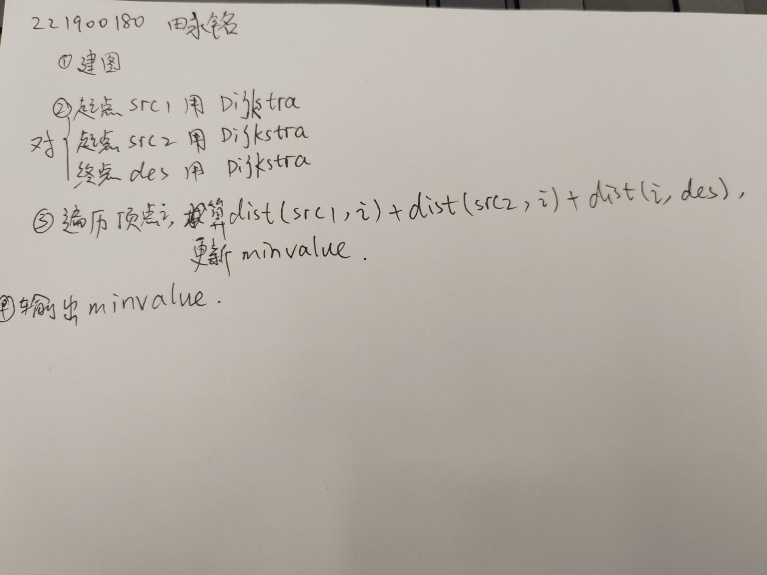 221900180 田永铭
①建图
②起点 src1 用 Dijkstra
对 起点 src2 用 Dijkstra
终点 des 用 Dijkstra
③遍历顶点i, 算dist(src1,i)+dist(src2,i)+dist(i,des),
更新 minvalue.
④输出 minvalue.